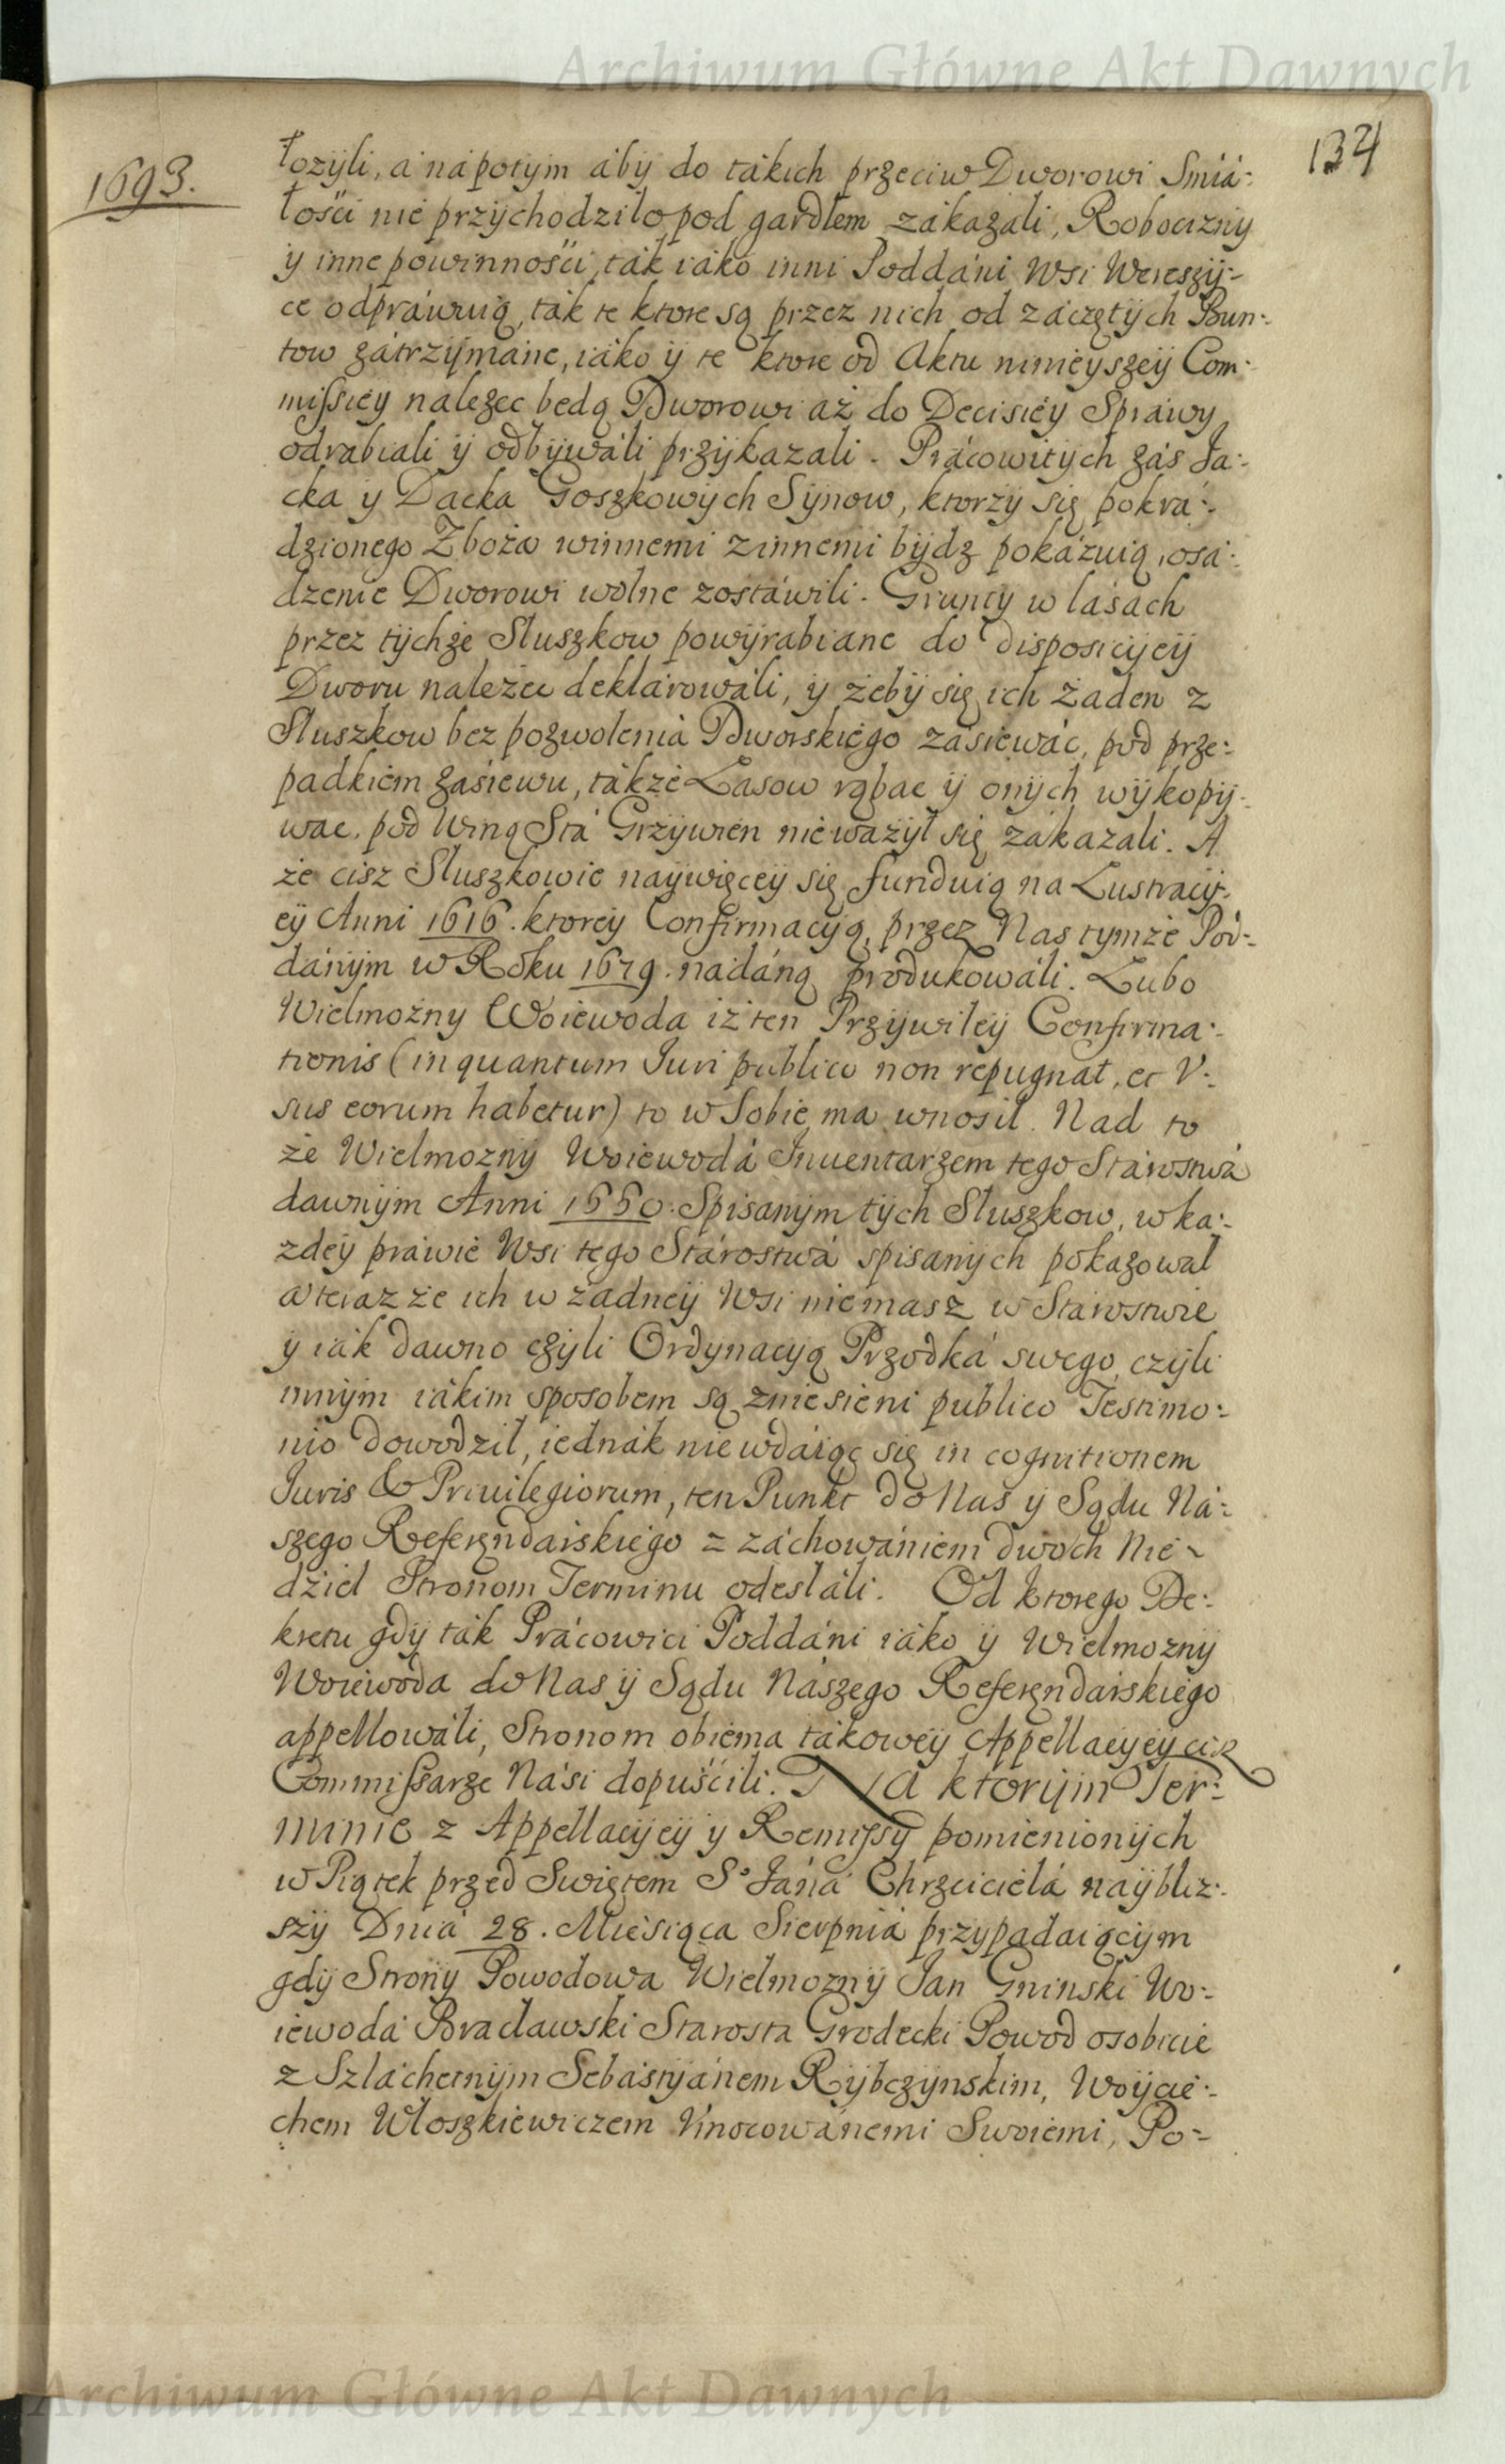 Archiwum Główne Akt Dawnych
134
1693.
łozÿli, á nápotÿm ábÿ do tákich przeciw Dworowi Smiá-
łośći nie przÿchodziło pod gardłem zákazáli, Robocizny
ÿ inne powinnośći, ták iáko inni Poddáni Wsi Wereszÿ-
ce odpráwuią, ták te ktore są przez nich od záczętÿch Bun-
tow zátrzÿmáne, iáko ÿ te ktore od Aktu ninieÿszeÿ Com-
missieÿ nalezec będą Dworowi aż do Decisieÿ Spráwy
odrabiali ÿ odbÿwáli przÿkazali. Prácowitÿch zás Ja-
cka ÿ Dacka Goszkowÿch Sÿnow, ktorzÿ się pokra-
dzionego Zboża winnemi zinnemi bÿdz pokázuią, osa-
dzenie Dworowi wolne zostáwili. Grunty w lásách
przez tÿchże Sluszkow powÿrabiane do disposicÿeÿ
Dworu należec deklárowáli, ÿ żebÿ się ich żaden z
Sluszkow bez pozwolenia Dworskiego zásiewác, pod prze-
padkiem zásiewu, tákże Lasow rąbac ÿ onÿch wÿkopÿ-
wac, pod Winą Sta Grzÿwien nieważÿł się zákazali. A
że cisz Sluszkowie naÿwięceÿ się funduią na Lustracÿ-
eÿ Anni 1616. ktoreÿ Confirmacÿą, przez Nas tymże Pod-
dánÿm w Roku 1679. nadáną produkowáli. Lubo
Wielmożny Woiewoda iż ten Przÿwileÿ Confirma-
tionis (in quantum Iuri publico non repugnat, et V-
sus eorum habetur) to w Sobie ma wnosił. Nad to
że Wielmoznÿ Woiewodá Inuentarzem tego Stárostwá
dawnÿm Anni 1660. Spisanÿm tÿch Sluszkow, w ka-
zdeÿ práwie Wsi tego Stárostwá spisanÿch pokazował
a teraz że ich w żadneÿ Wsi niemasz w Starostwie
ÿ iák dawno czÿli Ordynacyą Przodká swego, czÿli
innÿm iákim sposobem są zniesieni publico Testimo-
nio dowodził, iednák niewdáiąc się in cognitionem
Iuris & Priuilegiorum, ten Punkt do Nas ÿ Sądu Ná-
szego Referendarskiego z záchowániem dwoch Nie-
dziel Stronom Terminu odesláli. Od ktorego De-
kretu gdÿ ták Prácowici Poddáni iáko ÿ Wielmoznÿ
Woiewoda do Nas ÿ Sądu Nászego Referendarskiego
appellowáli, Stronom obiema tákoweÿ Appellacÿeÿ ciż
Commissarze Nási dopuśćili. Na ktorÿm Ter-
minie z Appellacÿeÿ y Remissÿ pomienionÿch
w Piątek przed Swiętem So Jáná Chrzcicielá naÿbliz-
szÿ Dniá 28. Miesiąca Sierpniá przypadaiącym
gdÿ Strony Powodowa Wielmoznÿ Jan Gninski Wo-
iewodá Bracławski Starosta Grodecki Powod osobicie
z Szláchetnÿm Sebastÿánem Rÿbczÿnskim, Woÿcie-
chem Włoszkiewiczem Vmocowánemi Swoiemi, Po-
Archiwum Główne Akt Dawnych